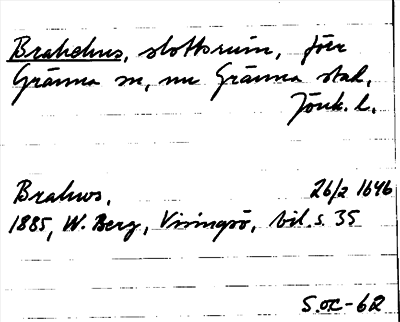 Brahehus, slottsruin, förr
Gränna sn, nu Gränna stad,
Jönk. l.
Brahus, 26/2 1646
1885, W. Berg, Visingsö, bil. s. 35
S.oc-62